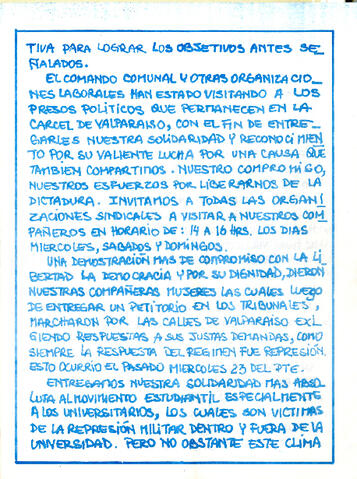 TIVA PARA LOGRAR LOS OBJETIVOS ANTES SE_
ÑALADOS.
EL COMANDO COMUNAL Y OTRAS ORGANIZACIO_
NES LABORALES HAN ESTADO VISITANDO A LOS
PRESOS POLITICOS QUE PERMANECEN EN LA
CARCEL DE VALPARAISO, CON EL FIN DE ENTRE_
GARLES NUESTRA SOLIDARIDAD Y RECONOCIMIEN_
TO POR SU VALIENTE LUCHA POR UNA CAUSA QUE
TAMBIEN COMPARTIMOS. NUESTRO COMPROMIGO,
NUESTROS ESFUERZOS POR LIBERARNOS DE LA
DICTADURA. INVITAMOS A TODAS LAS ORGANI_
ZACIONES SINDICALES A VISITAR A NUESTROS COM_
PAÑEROS EN HORARIO DE: 14 A 16 HRS. LOS DIAS
MIERCOLES, SABADOS Y DOMINGOS.
UNA DEMOSTRACION MAS DE COMPROMISO CON LA LI_
BERTAD LA DEMOCRACIA Y POR SU DIGNIDAD, DIERON
NUESTRAS COMPAÑERAS MUJERES LAS CUALES LUEGO
DE ENTREGAR UN PETITORIO EN LOS TRIBUNALES,
MARCHARON POR LAS CALLES DE VALPARAISO EXI_
GIENDO RESPUESTAS A SUS JUSTAS DEMANDAS, COMO
SIEMPRE LA RESPUESTA DEL REGIMEN FUE REPRESIÓN.
ESTO OCURRIO EL PASADO MIERCOLES 23 DEL PTE.
ENTREGAMOS NUESTRA SOLIDARIDAD MAS ABSO_
LUTA AL MOVIMIENTO ESTUDIANTIL ESPECIALMENTE
A LOS UNIVERSITARIOS, LOS CUALES SON VICTIMAS
DE LA REPRESIÓN MILITAR DENTRO Y FUERA DE LA
UNIVERSIDAD. PERO NO OBSTANTE ESTE CLIMA